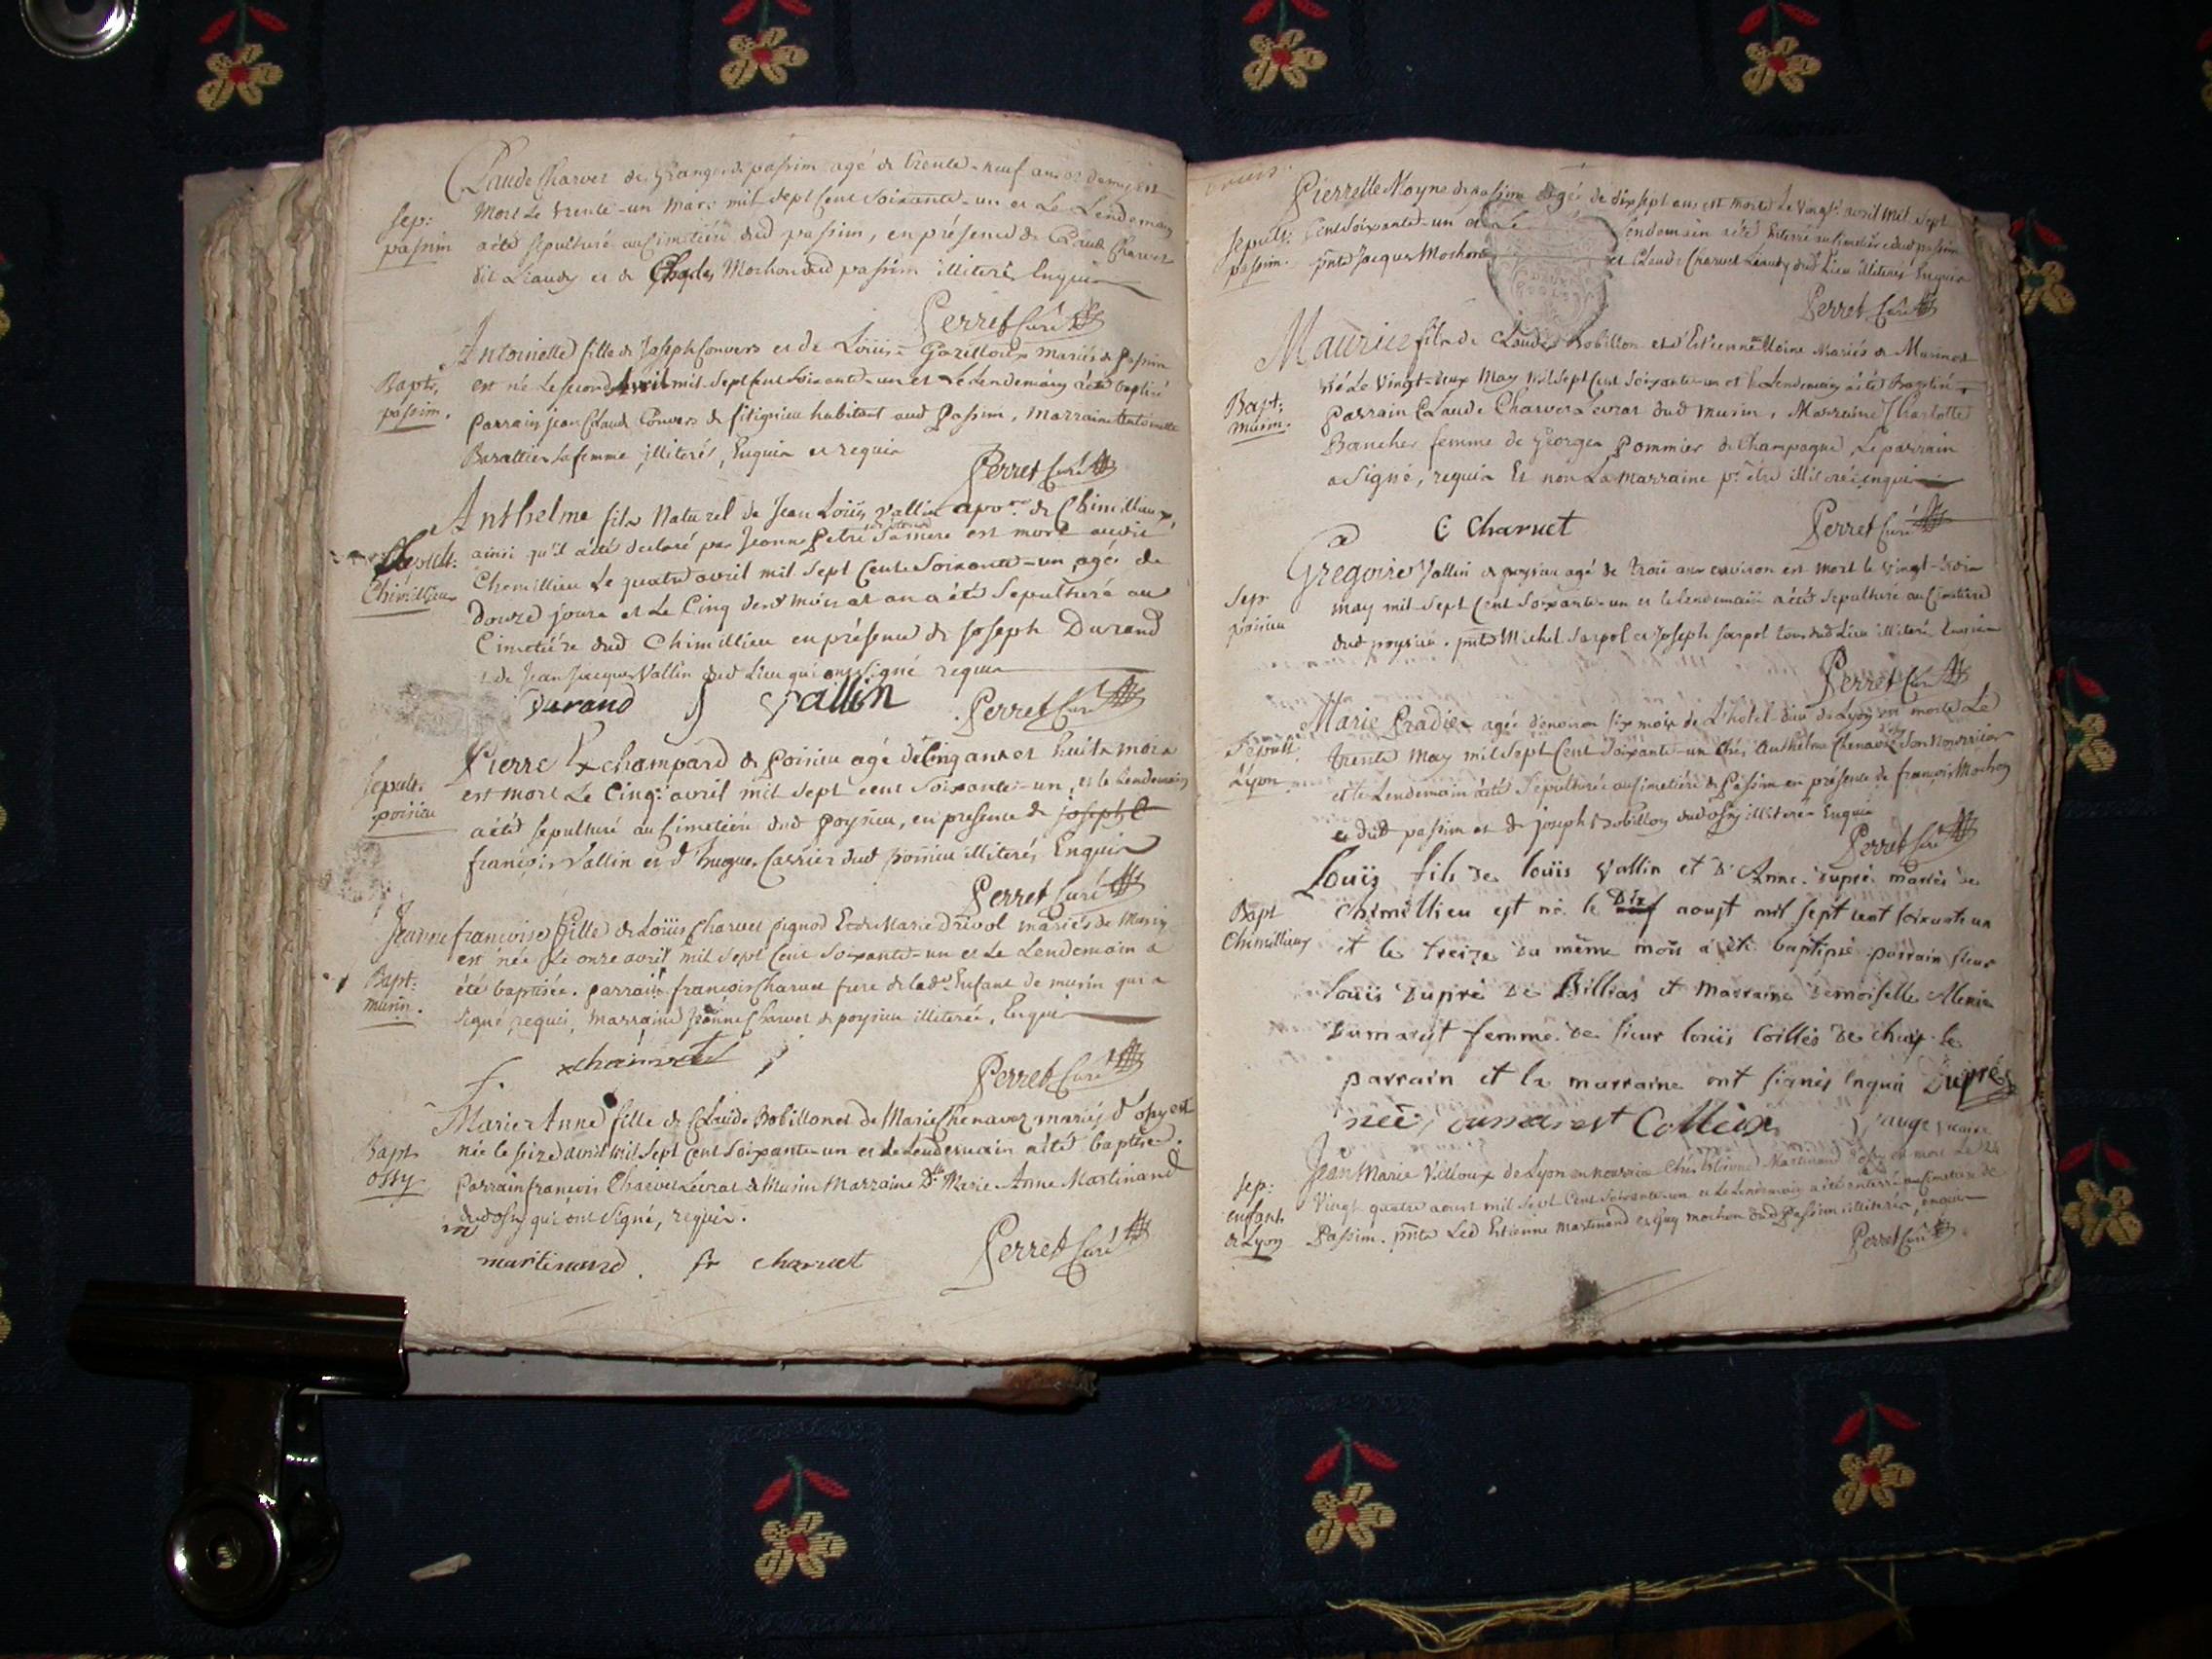 Claude Charvet des granges de passim agé de trente-neuf ans et demy est
Sep: mort Le trente-un mars mil sept Cent soixante-un et Le Lendemain
passim a été sepulturé au Cimetière dud passim, en présence de Claude Charvet
dit Liaudy et de Charles Mochon dud passim illiterés Enquis
Perret Curé
Antoinette fille de Joseph Convers et de Loüise mariés de passim
Bapt: est né Le second Avril mil Sept Cent soixante-un et Le Lendemain a été baptisé
passim. parrain jean Claude Convers de habitant aud passim, marraine Antoinette
Barattier sa femme illiterés, Enquis et requis
Perret Curé
Anthelme fils Naturel de Jean Loüis Vallin de Chimillieux,
Sepult: ainsi qu'il a été declaré par Jeanne petre sa mere est mort audit
Chimillieux Chemillieu Le quatre avril mil Sept Cent Soixante-un agé de
douze jours et Le Cinq desd mois et an a été Sepulturé au
Cimetière dud Chimillieu en présence de Joseph Durand
et de Jean Jacques Vallin dud Lieu qui ont signé requis
Durand J Vallin Perret Curé
Pierre Exchampard de Poirieu agé de Cinq ans et huit mois
Sepult: est mort Le Cinq: avril mil Sept cent Soixante-un, et le Lendemain
poirieu a été sepulturé au Cimetière dud poysieu, en presence de joseph C
françois Vallin et d'hugue Carrier dud poirieu illiterés Enquis
Perret Curé
Jeanne françoise fille de Loüis Charvet pignod Et de Marie Drevol mariés de Musin
est née Le onze avril mil Sept Cent Soixante-un et Le Lendemain a
Bapt: été baptisée. parrain françois Charvet frere de lade Enfant de musin qui a
musin. signé requis, marraine Jeanne Charvet de poysieu illiterée, Enquis
f. charvet Perret Curé
Marie Anne fille de Claude Bobillon et de Marie Chenavaz mariés d'ossy est
Bapt née le seize avril mil Sept Cent Soixante-un et Le Lendemain a été baptisée.
ossy parrain françois Charvet Levrat de Musin Marraine Dlle Marie Anne Martinand
dud ossy qui ont Signé, requis.
m martinand. fr charvet Perret Curé
Pierrette Moyne de passim agée de dix sept ans est morte Le vingt: avril mil Sept
Sepult: Cent Soixante-un et Le Lendemain a été Enterré au Cimetière dud passim
passim. pnts Jacques Mochon et Claude Charvet Liaudy dud Lieu illiterés Enquis
Perret Curé
Maurice fils de Claude Bobillon et d'Estiennette Moine mariés de Musin est
né Le Vingt-deux May Mil Sept Cent Soixante-un et Le Lendemain a été Baptisé,
Bapt: parrain Claude Charvet Levrat dud musin, Marraine Charlotte
musin. Bancher femme de George Pommier de Champagne, Le parrain
a Signé, requis Et non La marraine pr être illiterée enquis
C Charvet Perret Curé
Gregoire Vallin de poysieu agé de trois ans environ est mort le vingt-trois
Sep: may mil Sept Cent Soixante-un et le lendemain a été Sepulturé au Cimetière
poisieu dud poysieu. pnts Michel Sarpol et Joseph Sarpol tous dud Lieu illiterés Enquis
Perret Curé
Marie Pradier agée d'environ six mois de L'hotel-dieu de Lyon est morte Le
Sepult: trente May mil Sept Cent Soixante-un chés Anthelme Chenavaz son Nourricier
Lyon et le Lendemain a été Sepulturée au Cimetière de Passim en présence de françois Mochon
dud passim et de joseph Bobillon dud ossy illiterés Enquis
Perret Curé
Loüis fils de loüis Vallin et d'Anne dupré mariés de
Bapt Chimillieu est né le Dix aoust mil Sept cent Soixante un
Chimillieux et le treize du même mois a été baptisé parrain sieur
loüis dupré de Billias et marraine demoiselle
Dumarest femme de sieur louis Collies de le
parrain et la marraine ont signés enquis Dupré
née, dumarest Collieu
Jean Marie Villoux de Lyon en nourrice chés Estienne Martinand d'ossy est mort Le 24
Sep: Vingt quatre aoust mil Sept Cent Soixante-un et Le Lendemain a été enterré au Cimetière de
enfant Passim. pnts Led Estienne martinand et Guy mochon dud Passim illiterés, enquis
de Lyon Perret Curé